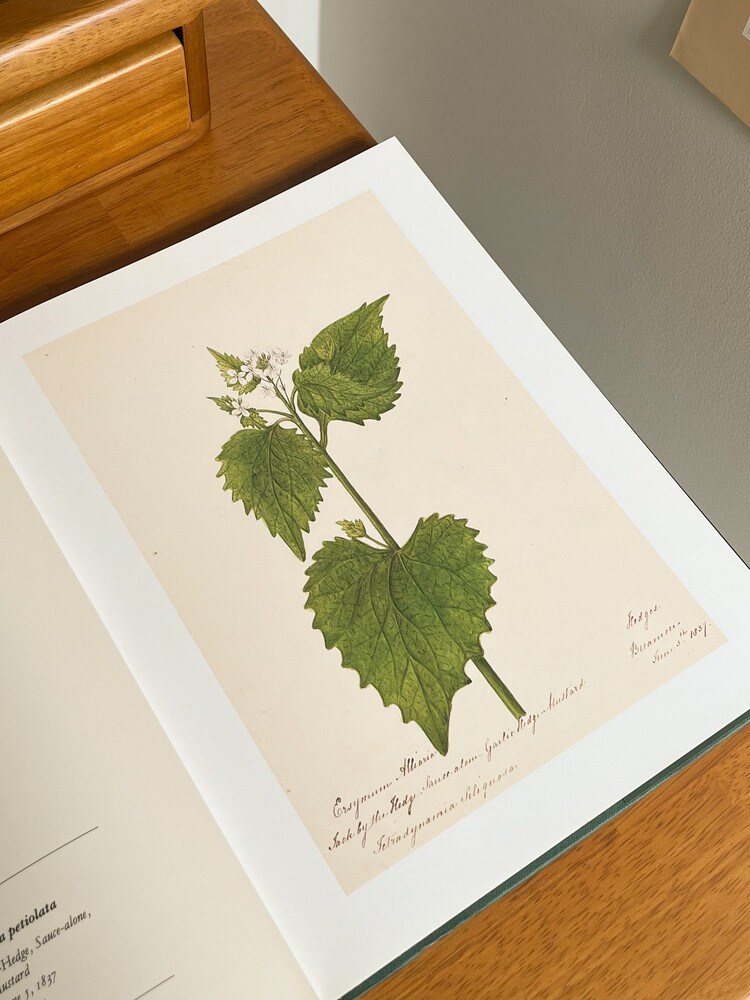 a petiolata
-Hedge, Sauce-alone,
ustard
ne 5, 1837
Hedges.
June 5th 1837.
Ersymum Alliaria
Jack by the Hedge. Sauce-alone. Garlic Hedge-Mustard.
Tetradynamia Siliquosa.